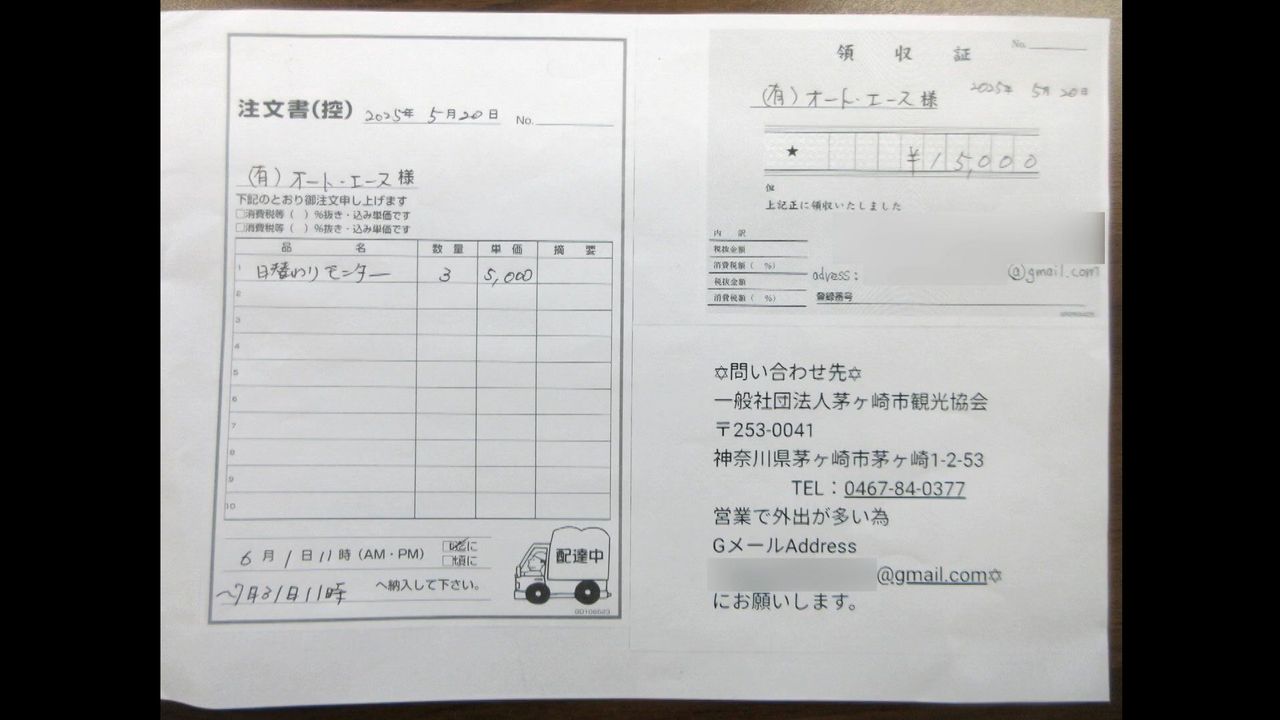 注文書(控) 2025年 5月20日 No.
(有)オート・エース 様
下記のとおり御注文申し上げます
□消費税等（ ）％抜き・込み単価です
□消費税等（ ）％抜き・込み単価です
品 名 数 量 単 価 摘 要
1 日替わりモニター 3 5,000
2
3
4
5
6
7
8
9
10
6月1日11時（AM・PM） □迄に
□頃に
～7月31日11時 へ納入して下さい。
配達中
領 収 証 No.
2025年 5月20日
(有)オート・エース 様
★ ¥15,000
但
上記正に領収いたしました
内 訳
税抜金額
消費税額（ ％）
税抜金額
消費税額（ ％）
advess: @gmail.com
登録番号
✡問い合わせ先✡
一般社団法人茅ヶ崎市観光協会
〒253-0041
神奈川県茅ヶ崎市茅ヶ崎1-2-53
TEL：0467-84-0377
営業で外出が多い為
GメールAddress
@gmail.com✡
にお願いします。